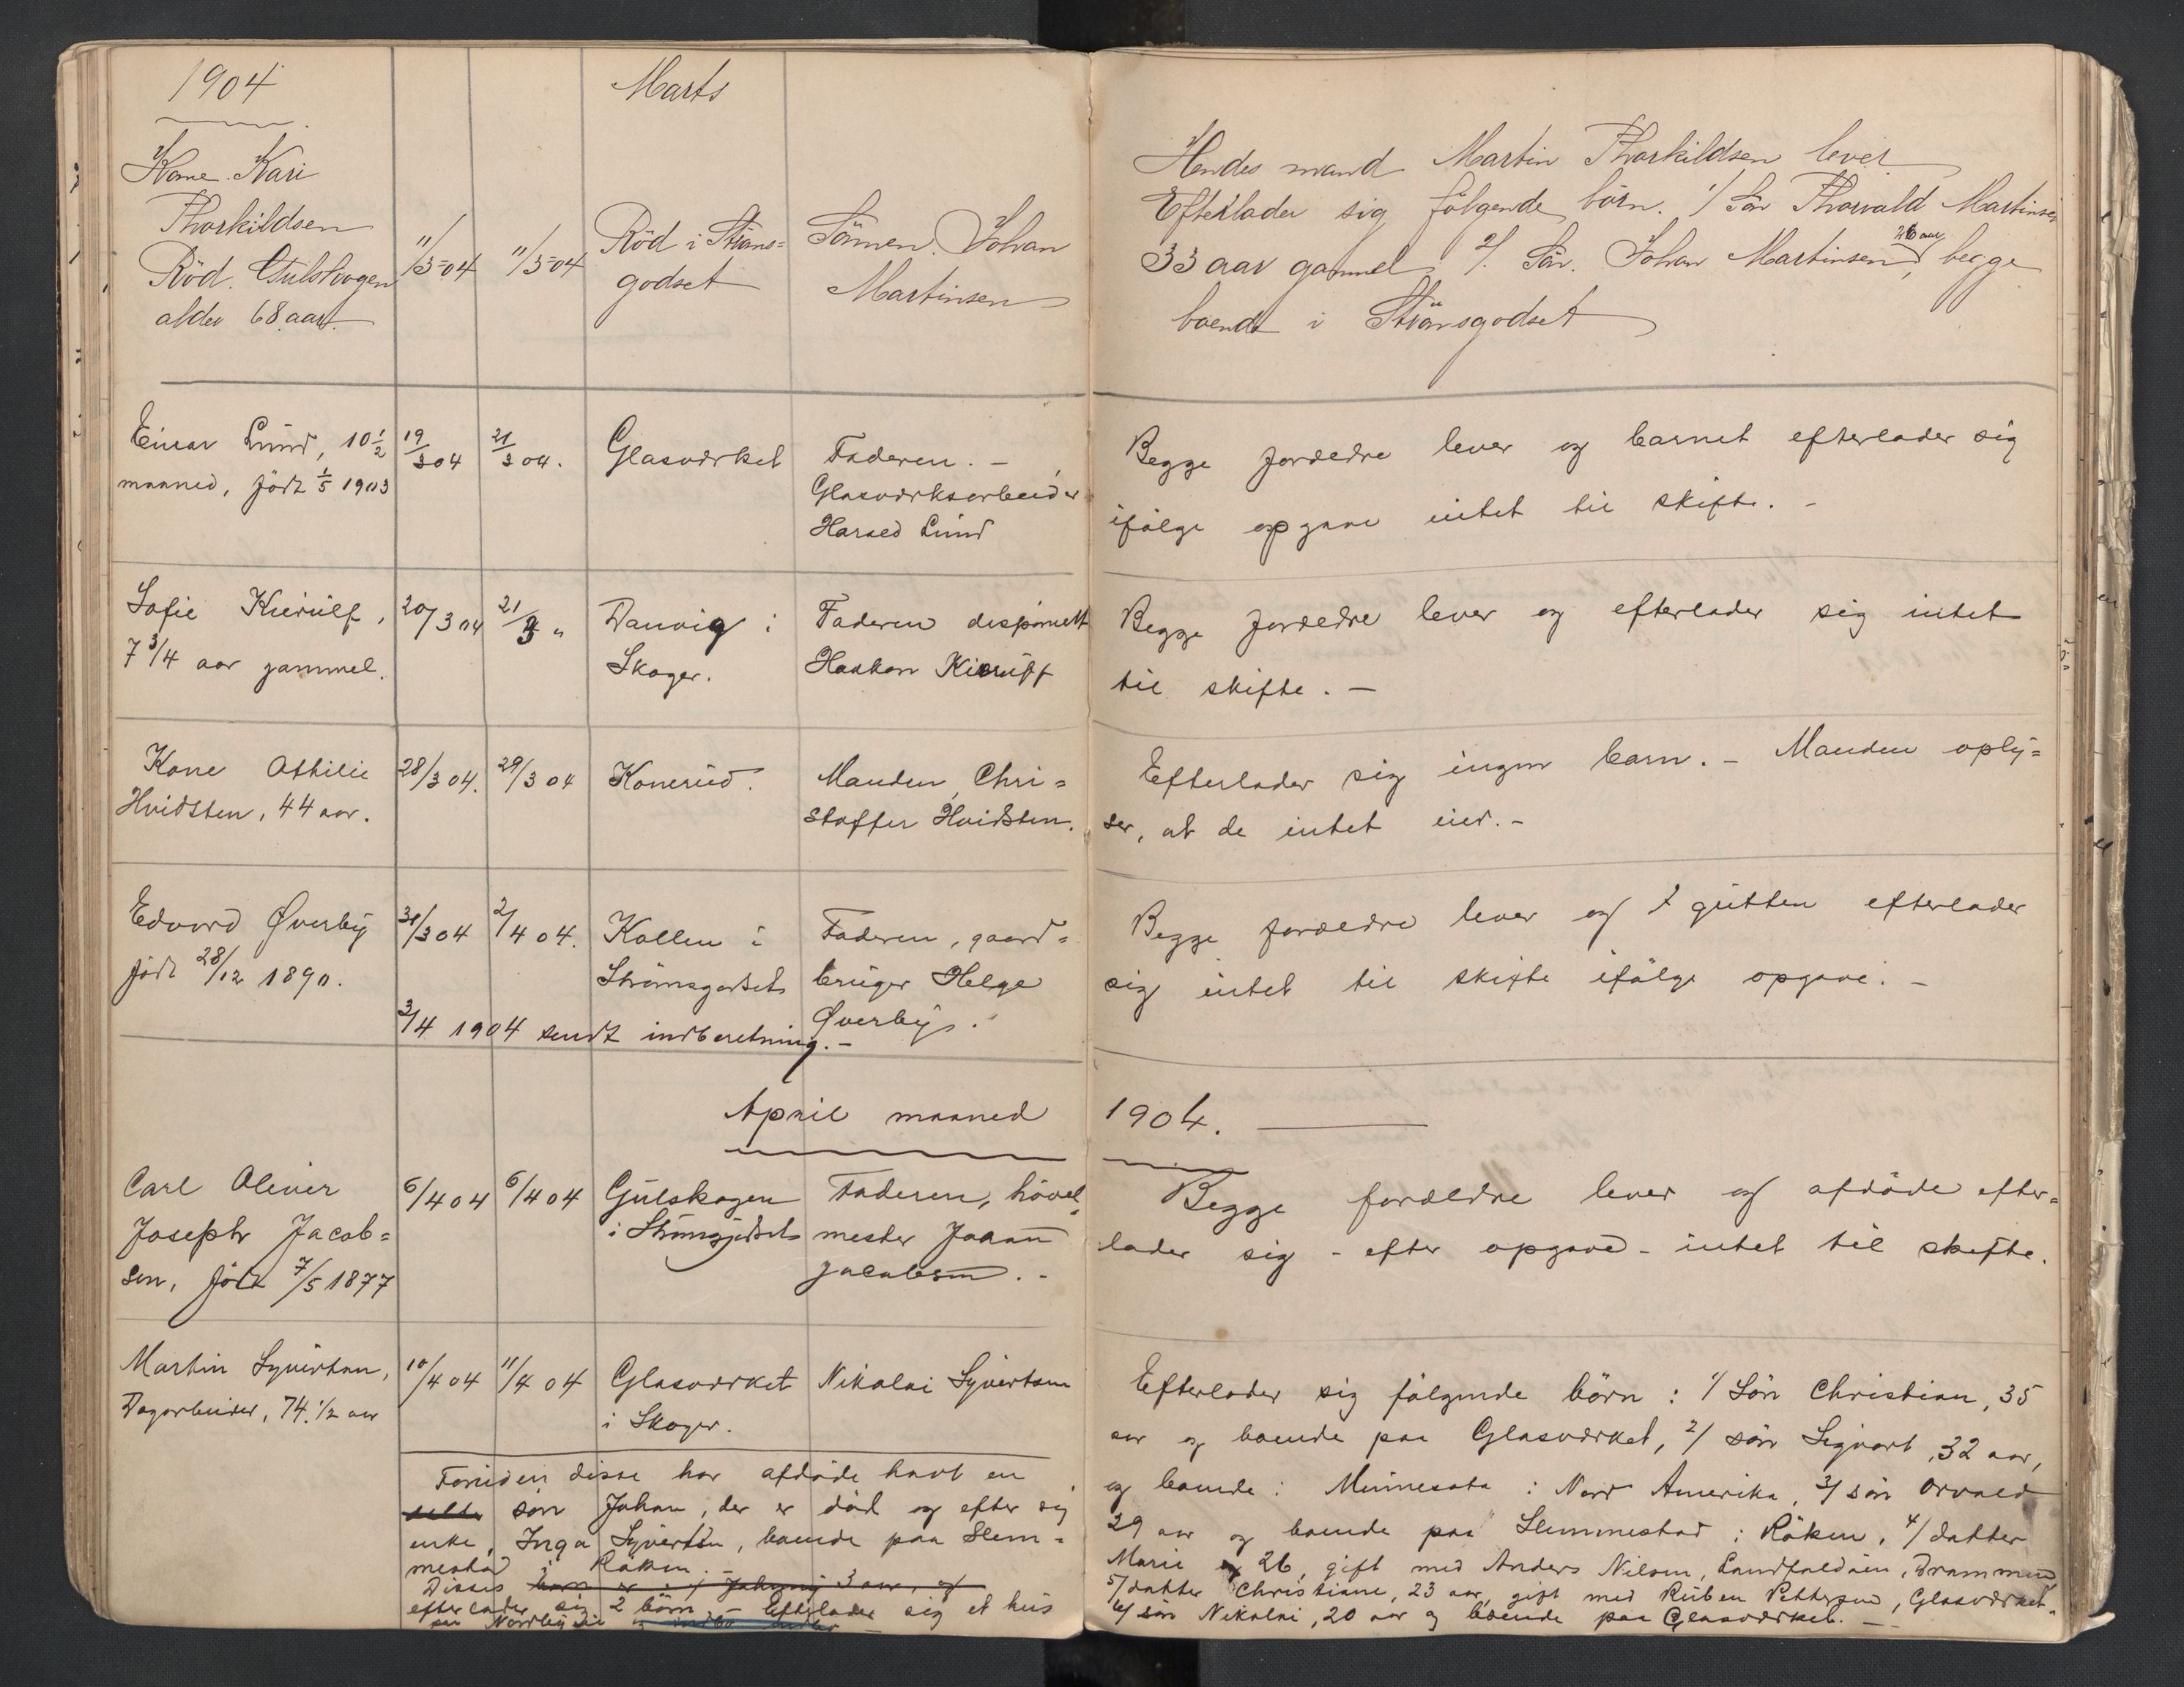 1904
Marts
Kone Kari
Thorkildsen
Röd. Gulskogen
alder 68 aar.
11/3-04
11/3-04
Röd i Ströms=
godset
Sönnen Johan
Martinsen
Hendes mand Martin Thorkildsen lever
Efterlader sig fölgende börn. 1/ Sön Thorvald Martinsen
33 aar gammel 2/. Sön. Johan Martinsen 26 aar, begge
boende i Strömsgodset
Einar Lund, 10 1/2
maaned, födt 1/5 1903
19/3 04
21/3 04.
Glasværket
Faderen. -
Glasværksarbeider
Harald Lund
Begge forældre lever og barnet efterlader sig
ifölge opgave intet til skifte. -
Sofie Kierulf,
7 3/4 aar gammel.
20/3 04
21/3 "
Danvig i
Skoger.
Faderen disponent
Haakon Kierulf
Begge forældre lever og efterlader sig intet
til skifte. -
Kone Othilie
Hvidsten, 44 aar.
28/3 04.
29/3 04
Konerud.
Manden, Chri=
stoffer Hvidsten.
Efterlader sig ingen barn. - Manden oply=
ser, at de intet eier. -
Edvard Øverby
födt 28/12 1890.
31/3 04
2/4 04.
Kollen i
Strömsgodset
Faderen, gaard=
bruger Helge
Øverby.
2/4 1904 sendt indberetning. -
Begge forældre lever og gutten efterlader
sig intet til skifte ifölge opgave. -
April maaned
1904.
Carl Oliver
Joseph Jacob=
sen, födt 7/5 1877
6/4 04
6/4 04
Gulskogen
i Strömsgodset
Faderen, hövel=
mester Johan
Jacobsen. -
Begge forældre lever og afdöde efter=
lader sig - efter opgave - intet til skifte.
Martin Syvertsen,
Dagarbeider, 74 1/2 aar
10/4 04
11/4 04
Glasværket
i Skoger.
Nikolai Syvertsen
Foruden disse har afdöde havt en
sön Johan, der er död og efter sig
enke, Inga Syvertsen, boende paa Slem=
mestad i Röken. -
Disses barn er: 1/ Johnny 3 aar, og
efterlader sig 2 börn - Efterlader sig et hus
paa Nordbyeie
Efterlader sig fölgende börn: 1/ Sön Christian, 35
aar og boende paa Glasværket, 2/ sön Sigvart, 32 aar,
og boende i Minnesota i Nord Amerika, 3/ sön Orvald
29 aar og boende paa Slemmestad i Röken, 4/ datter
Marie 26, gift med Anders Nilsen, Landfaldöen, Drammen,
5/ datter Christiane, 23 aar, gift med Ruben Pettersen, Glasværket
6/ sön Nikolai, 20 aar og boende paa Glasværket. -